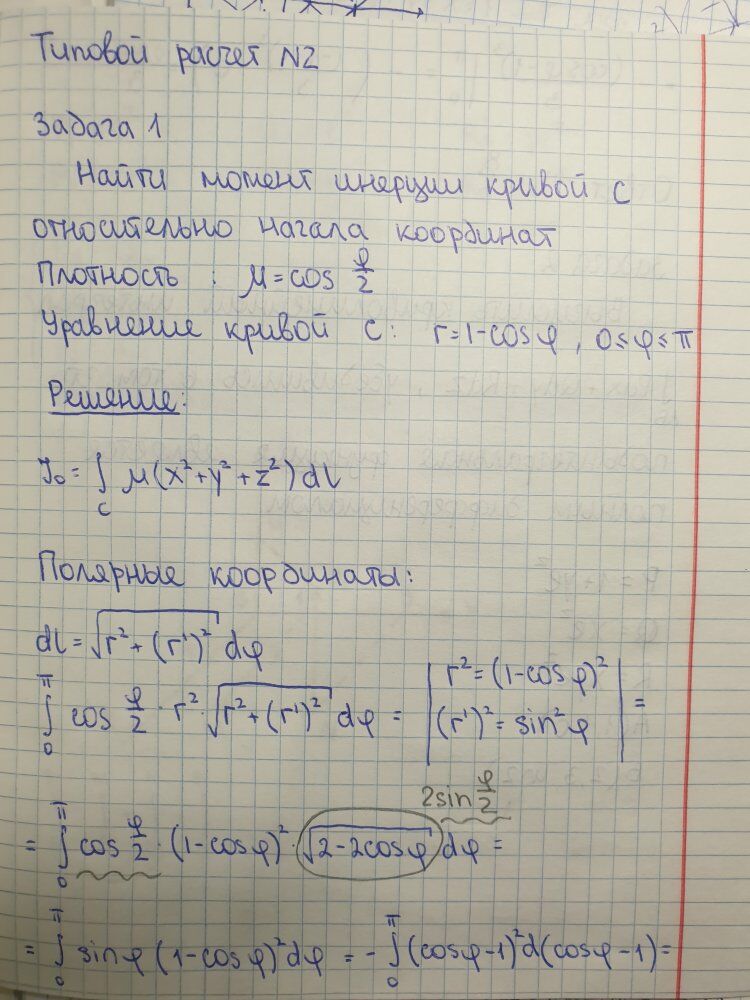 Типовой расчет N2
Задача 1
Найти момент инерции кривой C
относительно начала координат
Плотность : μ = cos φ/2
Уравнение кривой C: r = 1 - cosφ , 0 ≤ φ ≤ π
Решение:
J₀ = ∫_C μ(x² + y² + z²) dl
Полярные координаты:
dl = √(r² + (r')²) dφ
∫₀^π cos φ/2 · r² · √(r² + (r')²) dφ = | r² = (1 - cosφ)² (r')² = sin²φ | =
2sin φ/2
= ∫₀^π cos φ/2 · (1 - cosφ)² · √(2 - 2cosφ) dφ =
= ∫₀^π sinφ (1 - cosφ)² dφ = - ∫₀^π (cosφ - 1)² d(cosφ - 1) =